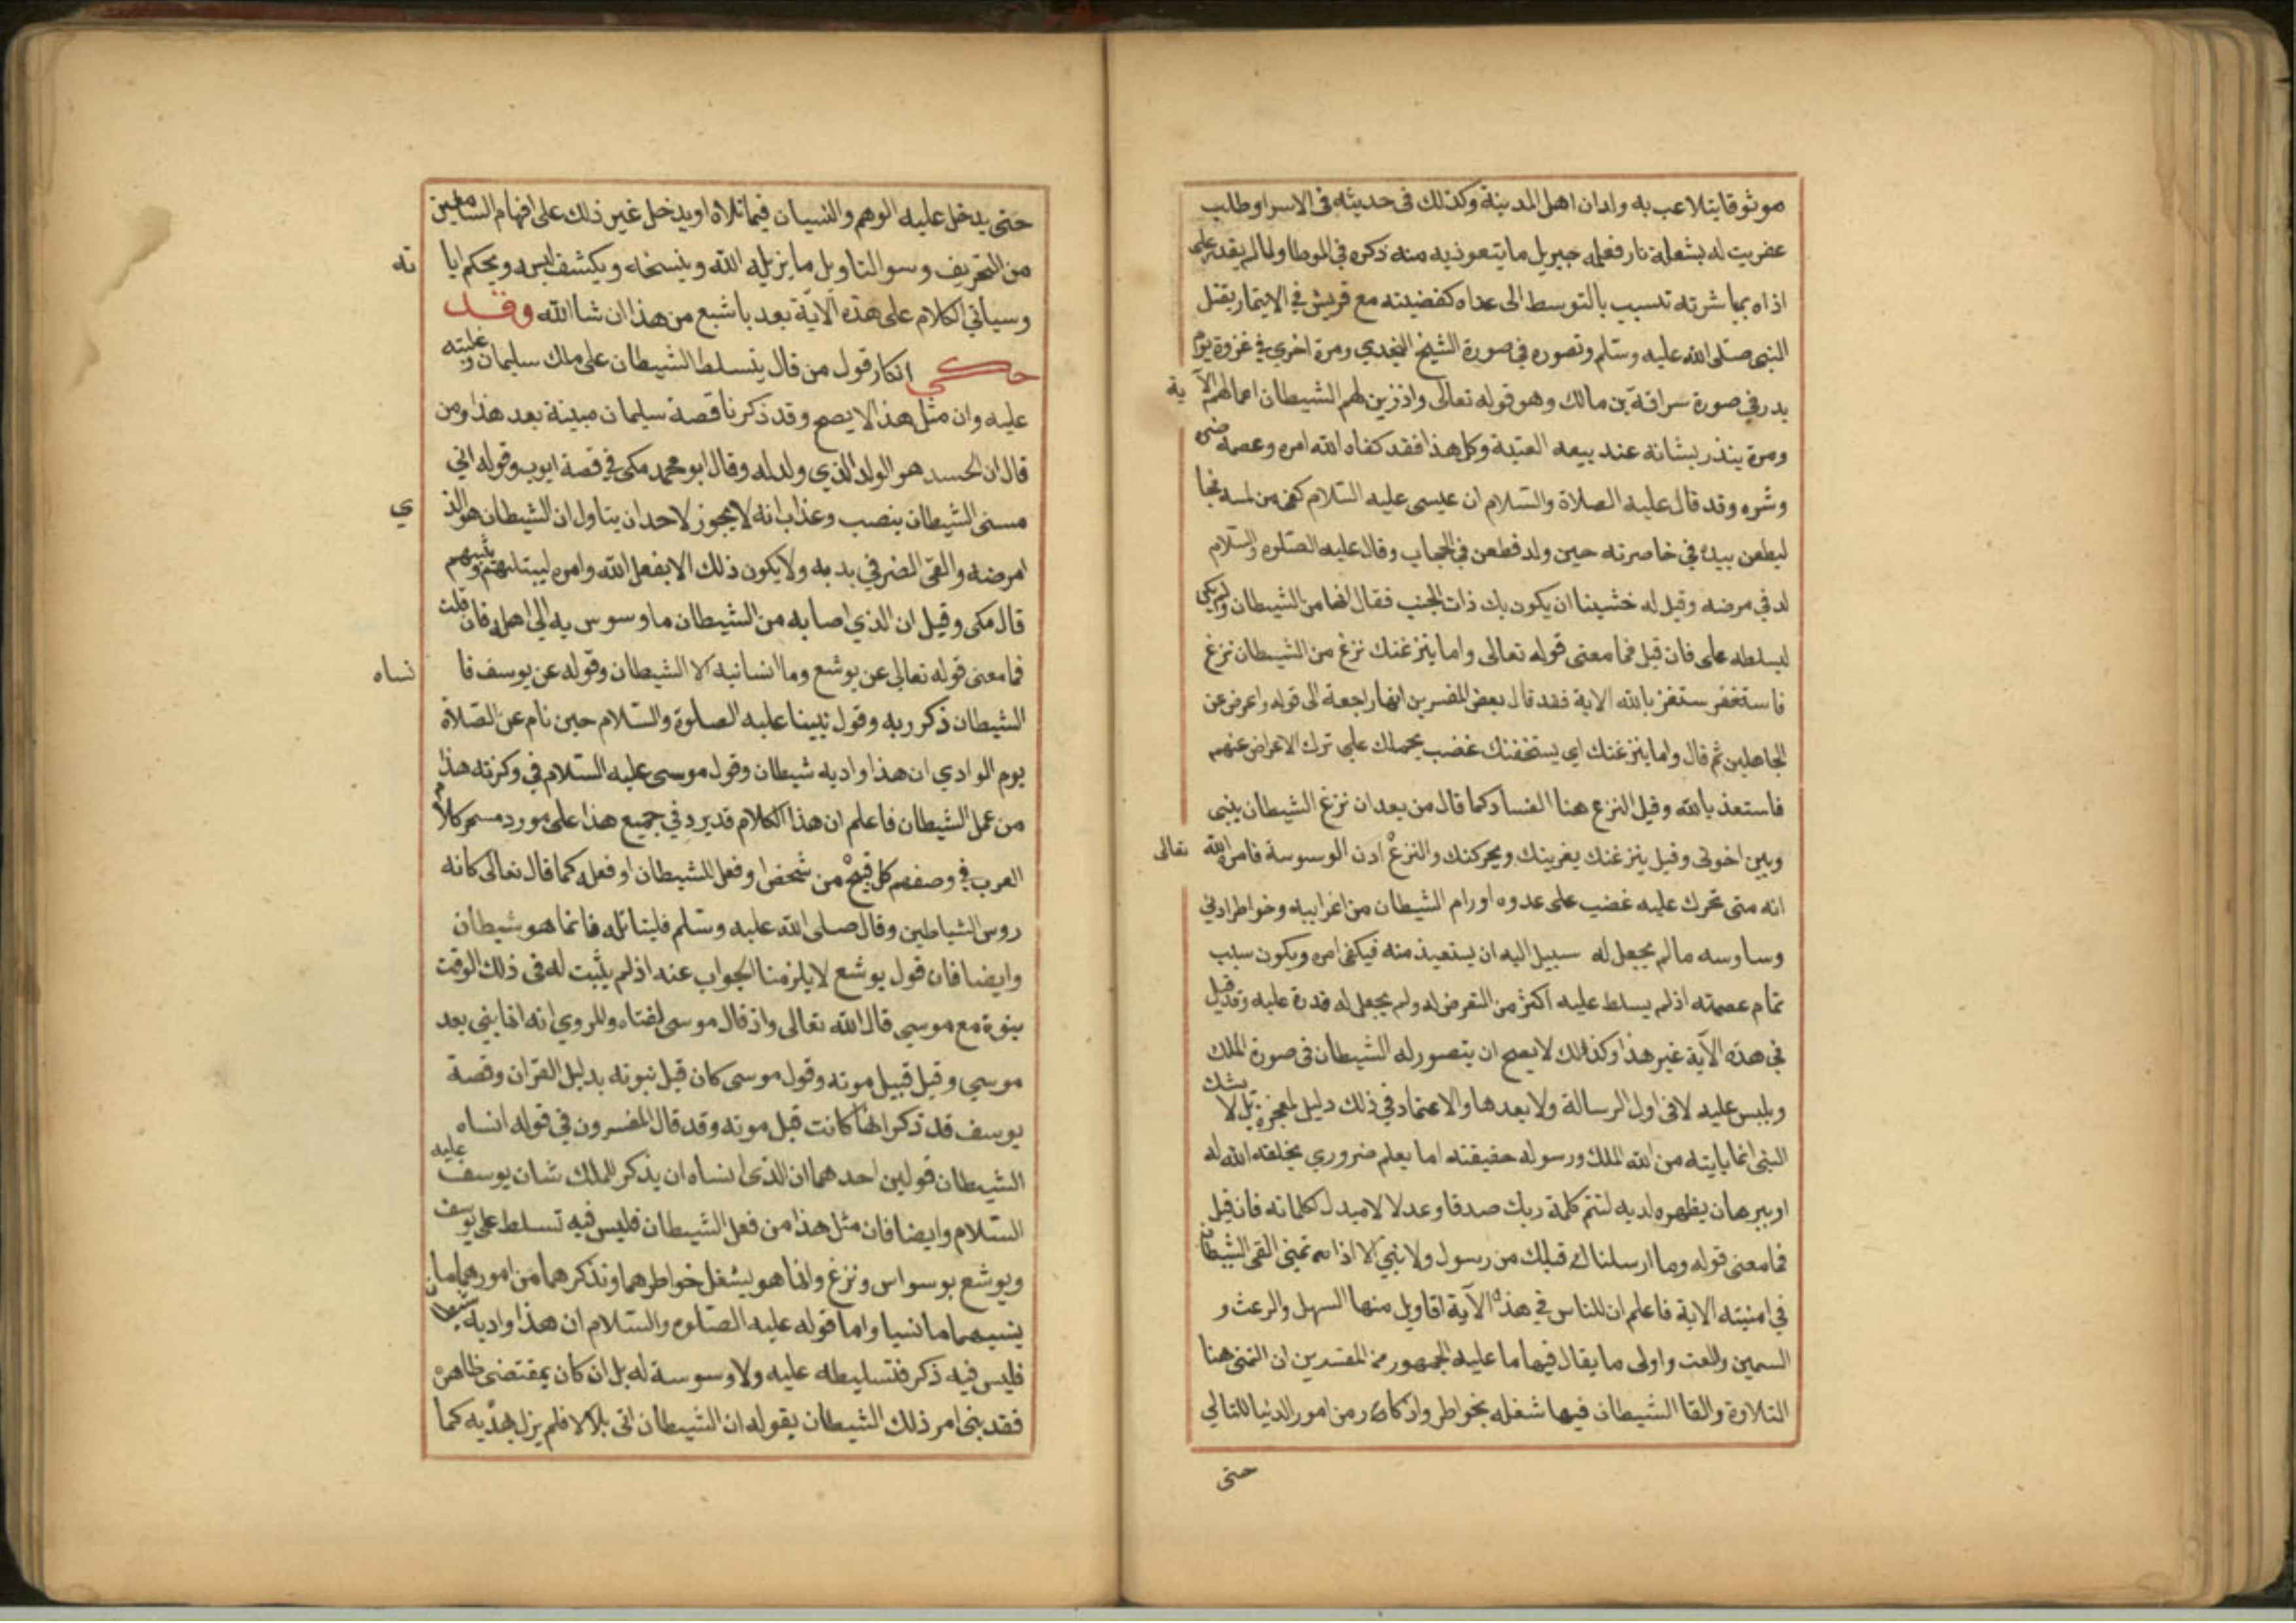 موثوقا يتلاعب به ولدان اهل المدينة وكذلك فى حديثه فى الاسرا وطلب
عفريت له بشعلة نار فعلمه جبريل ما يتعوذ به منه ذكره في الموطا ولما لم يقدر على
اذاه بمباشرته تسبب بالتوسط الى عداه كقضيته مع قريش في الايتمار بقتل
النبى صلى الله عليه وسلم وتصوره فى صورة الشيخ النجدي ومرة اخرى في غزوة يوم
بدر في صورة سراقة بن مالك وهو قوله تعالى واذ زين لهم الشيطان اعمالهم الآ ية
ومرة ينذر بشانه عند بيعه العقبة وكل هذا فقد كفاه الله امره وعصمه ضره
وشره وقد قال عليه الصلاة والسلام ان عيسى عليه السلام كفى من لمسه فجا
ليطعن بيده في خاصرته حين ولد فطعن في الحجاب وقال عليه الصلوة والسلام
لد في مرضه وقيل له خشينا ان يكون بك ذات الجنب فقال انها من الشيطان ولم يكن
ليسلطه على فان قيل فما معنى قوله تعالى واما ينزغنك من الشيطان نزغ
فاستعذ بالله الاية فقد قال بعض المفسرين انها راجعة الى قوله واعرض عن
الجاهلين ثم قال واما ينزغنك اي يستخفنك غضب يحملك علي ترك الاعراض عنهم
فاستعذ بالله وقيل النزغ هنا الفساد كما قال من بعد ان نزغ الشيطان بينى
وبين اخوتى وقيل ينزغنك يغرينك ويحركنك والنزغ ادن الوسوسة فامره الله تعالى
انه متى تحرك عليه غضب على عدوه او رام الشيطان من اغرايه به وخواطر ادني
وساوسه ما لم يجعل له سبيل اليه ان يستعيذ منه فيكفى امره ويكون سبب
تمام عصمته اذ لم يسلط عليه اكثر من التعرض له ولم يجعل له قدرة عليه وقد قيل
في هذه الآية غير هذا وكذلك لا يصح ان يتصور له الشيطان فى صورة الملك
ويلبس عليه لا فى اول الرسالة ولا بعدها والاعتماد في ذلك دليل المعجزة بل لا يشك
النبى انما ياتيه من الله الملك ورسوله حقيقته اما بعلم ضروري يخلقه الله له
او ببرهان يظهره لديه لتتم كلمة ربك صدقا وعدلا لا مبدل لكلماته فان قيل
فما معنى قوله وما ارسلنا من قبلك من رسول ولا نبي الا اذا تمنى القى الشيطان
في امنيته الاية فاعلم ان للناس في هذه الآية اقاويل منها السهل والوعث و
السمين والغث واولى ما يقال فيها ما عليه الجمهور من المفسرين ان التمنى هنا
التلاوة والقا الشيطان فيها شغله بخواطر واذكار من امور الدنيا للتالي
حتى
حتى يدخل عليه الوهم والنسيان فيما تلاه او يدخل غير ذلك على افهام السامعين
من التحريف وسو التاويل ما يزيله الله وينسخه ويكشف لبسه ويحكم ايا ته
وسياتي الكلام على هذه الآية بعد باشبع من هذا ان شا الله وقد
حكى انكار قول من قال بتسلط الشيطان على ملك سليمان وغلبته
عليه وان مثل هذا لا يصح وقد ذكرنا قصة سليمان مبينة بعد هذا ومن
قال ان الجسد هو الولد الذي ولد له وقال ابو محمد مكى في قصة ايوب وقوله اني
مسنى الشيطان بنصب وعذاب انه لا يجوز لاحد ان يتاول ان الشيطان هو الذ ي
امرضه والقى الضر في بدنه ولا يكون ذلك الا بفعل الله وامره ليبتليهم ويثيبهم
قال مكى وقيل ان الذي اصابه من الشيطان ما وسوس به الى اهله فان قلت
فما معنى قوله تعالى عن يوشع وما انسانيه الا الشيطان وقوله عن يوسف فا نساه
الشيطان ذكر ربه وقول نبينا عليه الصلوة والسلام حين نام عن الصلاة
يوم الوادي ان هذا واد به شيطان وقول موسى عليه السلام في وكزته هذا
من عمل الشيطان فاعلم ان هذا الكلام قد يرد في جميع هذا على مورد مستمر كلام
العرب في وصفهم كل قبيح من شخص او فعل بالشيطان او فعله كما قال تعالى كانه
روس الشياطين وقال صلى الله عليه وسلم فليقاتله فانما هو شيطان
وايضا فان قول يوشع لا يلزمنا الجواب عنه اذ لم يثبت له في ذلك الوقت
نبوة مع موسى قال الله تعالى واذ قال موسى لفتاه والمروي انه انما نبي بعد
موسى وقيل قبيل موته وقول موسى كان قبل نبوته بدليل القران وقصة
يوسف قد ذكر انها كانت قبل موته وقد قال المفسرون في قوله انساه
الشيطان قولين احدهما ان الذى انساه ان يذكر للملك شان يوسف عليه
السلام وايضا فان مثل هذا من فعل الشيطان فليس فيه تسلط على يوسف
ويوشع بوسواس ونزغ وانما هو يشغل خواطرهما وتذكرهما من امورهما ما
ينسيهما ما نسيا واما قوله عليه الصلوة والسلام ان هذا واد به شيطان
فليس فيه ذكر فتسليطه عليه ولا وسوسة له بل ان كان بمقتضى ظاهره
فقد بين امر ذلك الشيطان بقوله ان الشيطان اتى بلالا فلم يزل يهديه كما